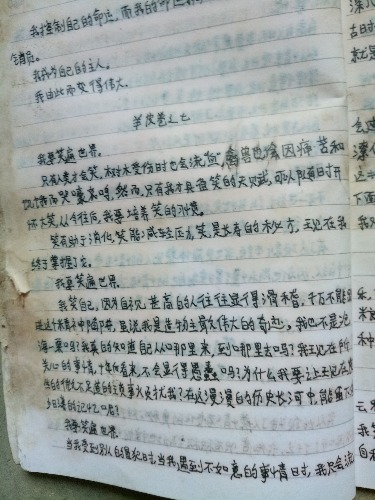 我控制自己的命运，而我的命运
我成为自己的主人。
我由此而变得伟大。
羊皮卷之七
我要笑遍世界。
只有人类才会笑。树木受伤时也会流"血"，禽兽也会因痛苦和
饥饿而哭嚎哀鸣，然而，只有我才具备笑的天赋，可以随时开
怀大笑，从今往后，我要培养笑的习惯。
笑有助于消化，笑能减轻压力，笑是长寿的秘方，现在我
终于掌握了它。
我要笑遍世界。
我笑自己，因为自视甚高的人往往显得滑稽，千万不能
这个精神陷阱，虽说我是造物主最伟大的奇迹，我也不是沧
海一粟吗？我真的知道自己从哪里来，到哪里去吗？我现在所
关心的事情，十年后看来，不会显得愚蠢吗？为什么我要让现在
的微不足道的琐事烦扰我？在这漫漫的历史长河中，能留下
多少日落的记忆呢？
我要笑遍世界。
当我受到别人的冒犯时，当我遇到不如意的事情时，我只会流